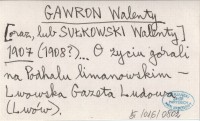 GAWRON Walenty
[oraz, lub SUŁKOWSKI Walenty]
1907 (1908?)... O życiu górali
na Podhalu limanowskim –
Lwowska Gazeta Ludowa
(Lwów).